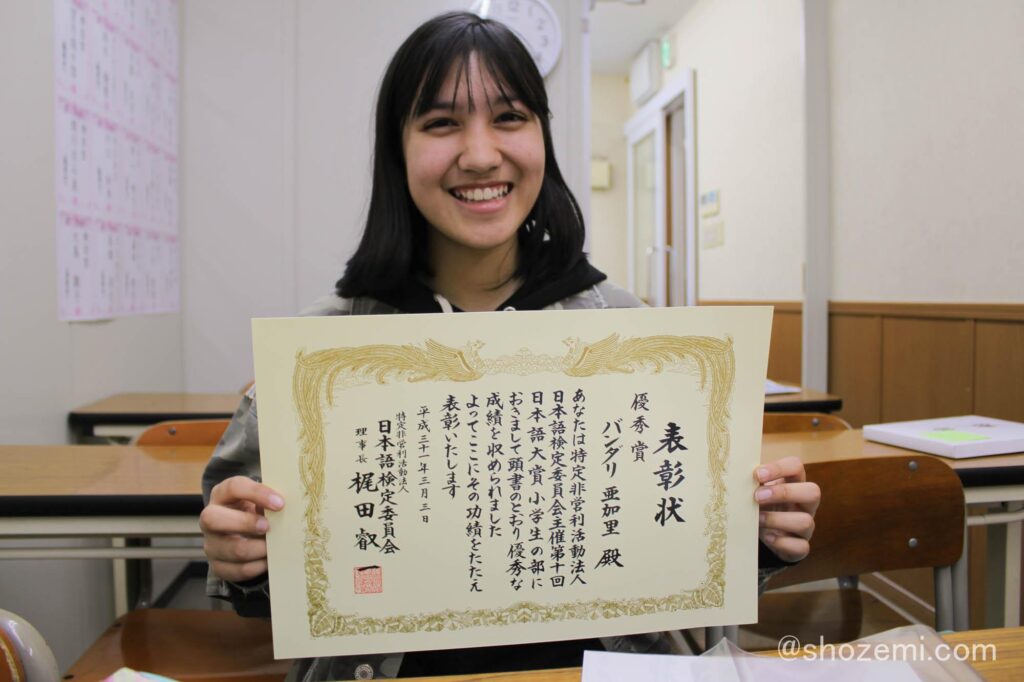 表彰状
優秀賞
バンダリ 亜加里 殿
あなたは特定非営利活動法人
日本語検定委員会主催第十回
日本語大賞小学生の部に
おきまして頭書のとおり優秀な
成績を収められました
よってここにその功績をたたえ
表彰いたします
平成三十一年三月三日
特定非営利活動法人
日本語検定委員会
理事長 梶田叡一
@shozemi.com